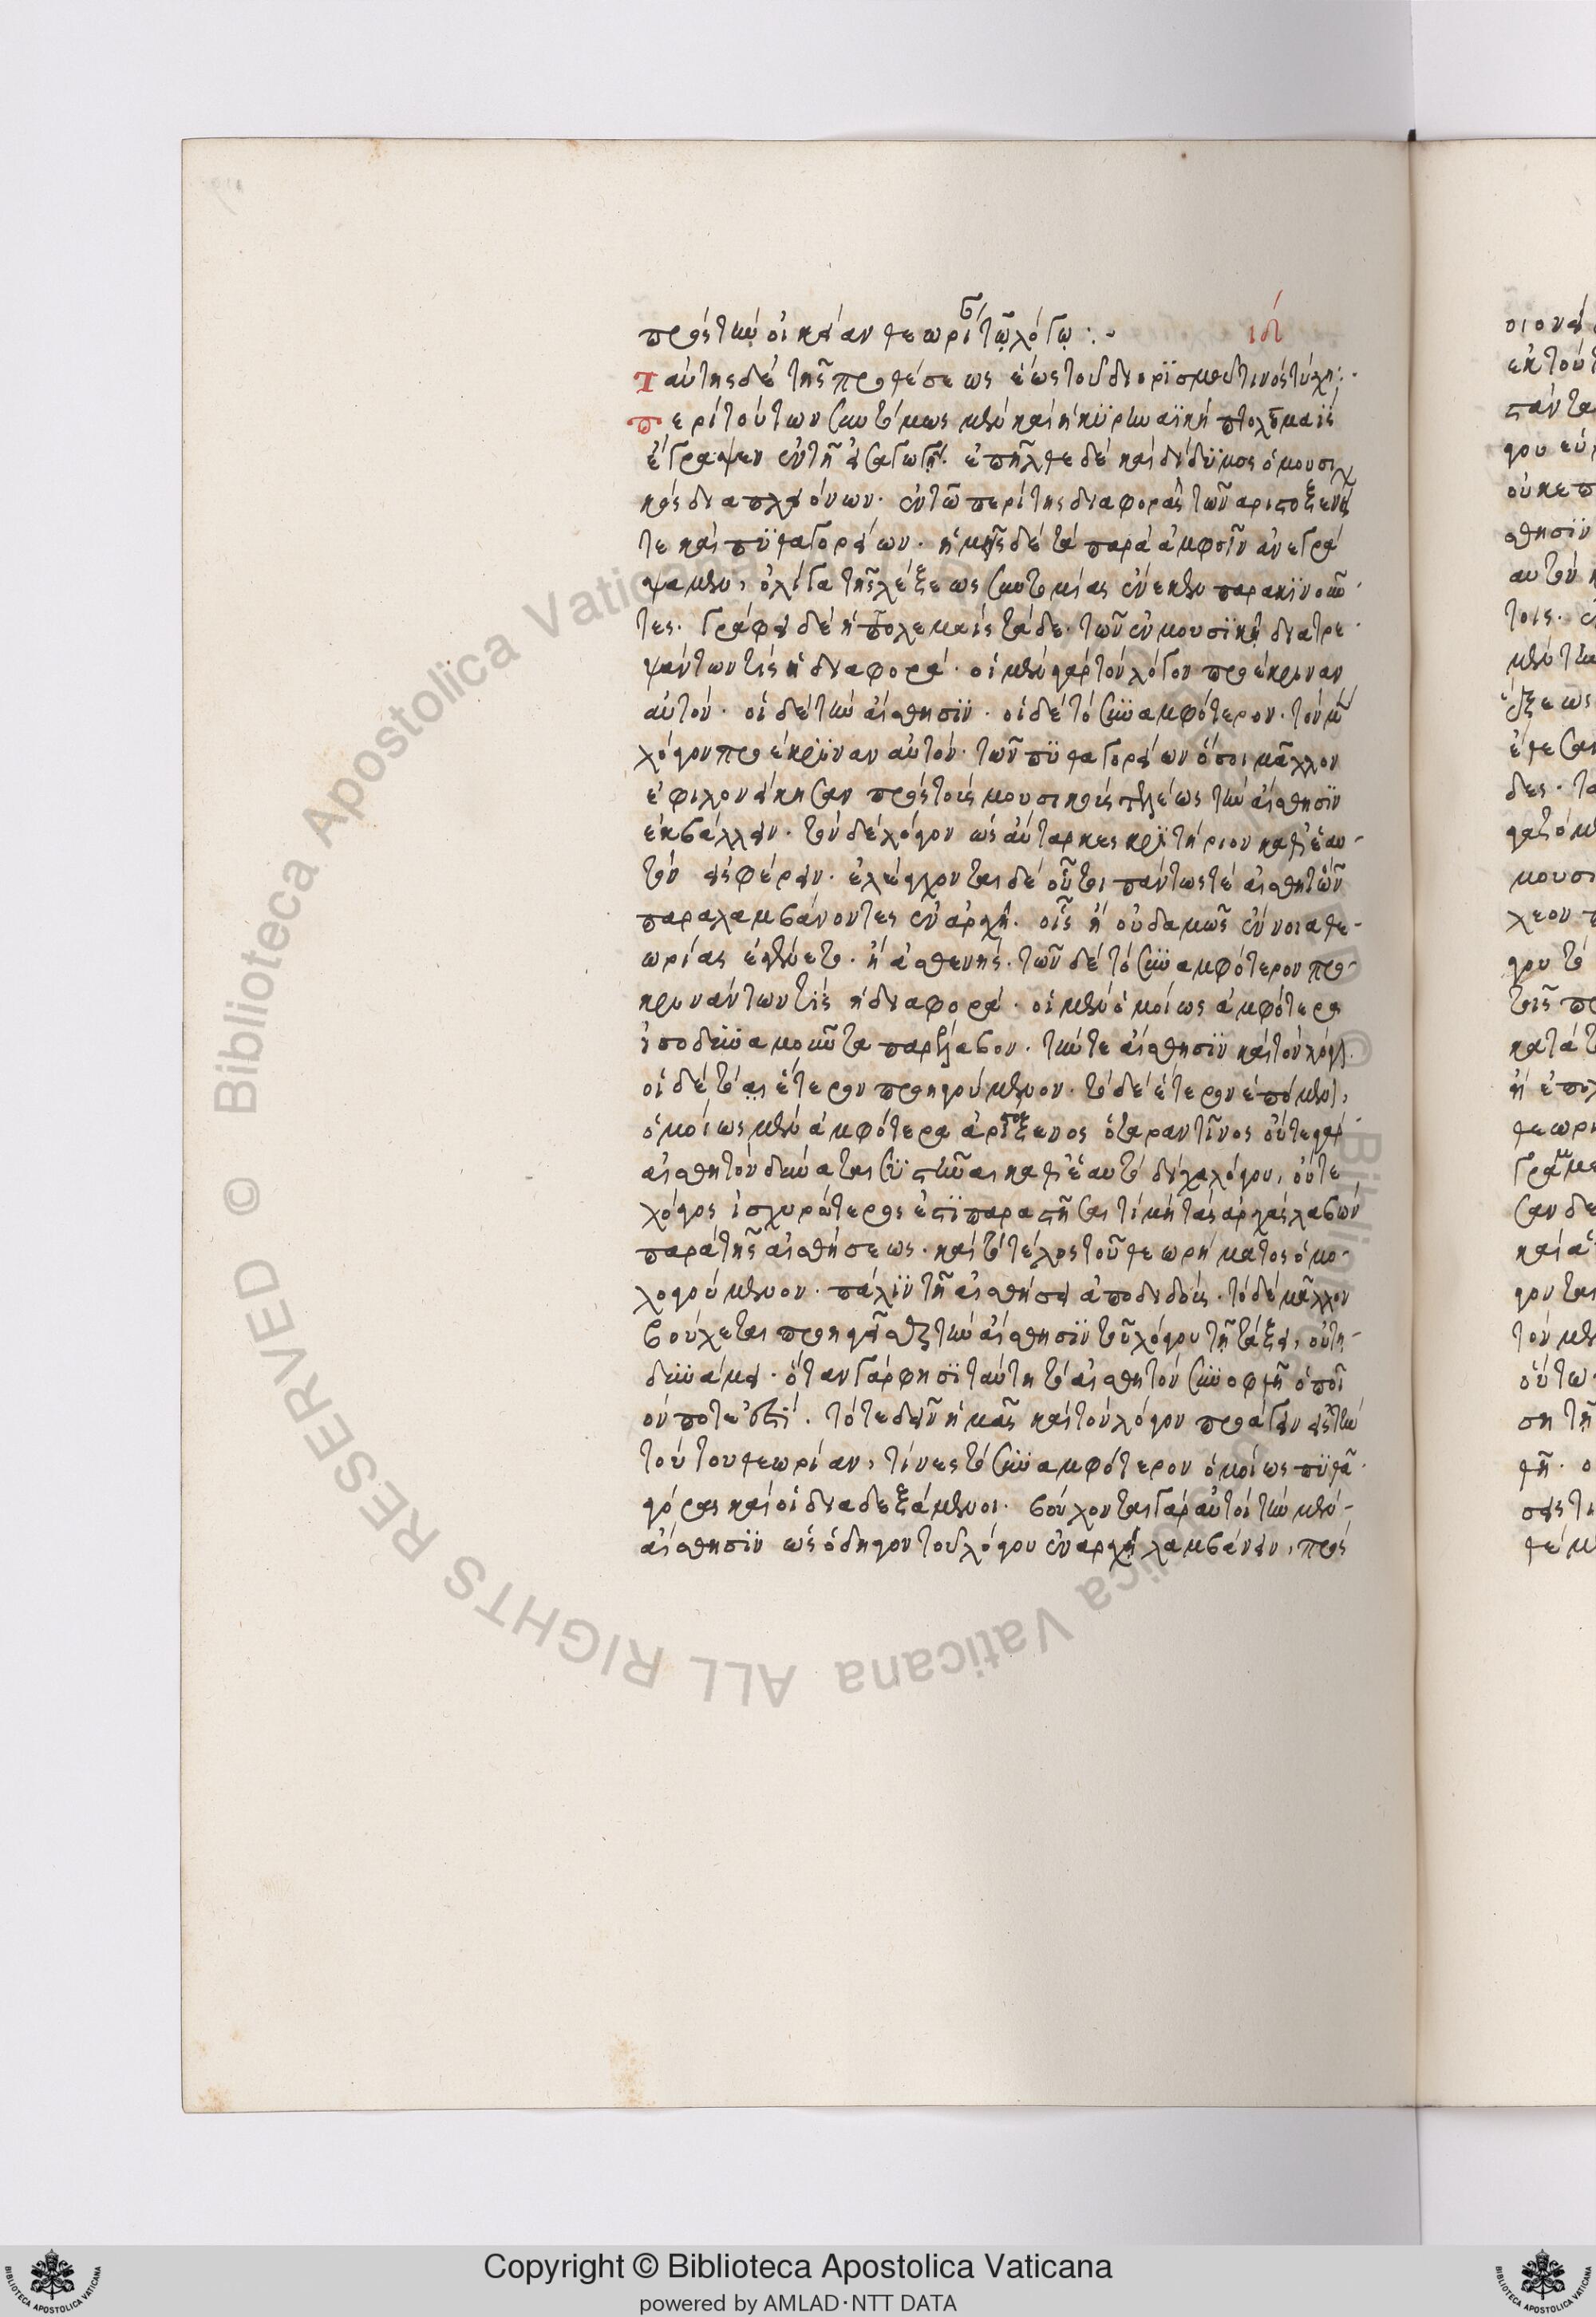 πρὸς τὴν οἰκείαν θεωρεῖται τῷ λόγῳ :- ιδ
Ταύτης δὲ τῆς προθέσεως ἕως τοῦ διορισμοῦ τινὸς τύχῃ:
Περὶ τούτων συντόμως μὲν καὶ ἡ κυρηναϊκὴ πτολεμαῒς
ἔγραψεν ἐν τῇ εἰσαγωγῇ. ἐπῆλθε δὲ καὶ δίδυμος ὁ μουσι
κὸς διαπλειόνων. ἐν τῶ περὶ τῆς διαφορᾶς τῶν αριστοξενείων
τε καὶ πυθαγορείων. ἡμεῖς δὲ τὰ παρὰ ἀμφοῖν ἀνεγρά
ψαμεν, ὀλίγα τῆς λέξεως συντομίας ἕνεκεν παρακινοῦν
τες. Γράφει δὲ ἡ πτολεμαῒς τάδε. τῶν ἐν μουσικῇ διατρε
ψάντων τίς ἡ διαφορά. οἱ μὲν γὰρ τὸν λόγον προέκριναν
αὐτὸν. οἱ δὲ τὴν αἴσθησιν. οἱ δὲ τὸ συναμφότερον. τὸν μὲν
λόγον προέκριναν αὐτὸν. τῶν πυθαγορείων ὅσοι μᾶλλον
ἐφιλονείκησαν πρὸς τοὺς μουσικοὺς τελέως τὴν αἴσθησιν
ἐκβάλλειν. τὸν δὲ λόγον ὡς αὔταρκες κριτήριον καθ' ἑαυ-
τὸν εἰσφέρειν. ἐλέγχονται δὲ οὗτοι πάντως τὲ αἰσθητῶν
παραλαμβάνοντες ἐν ἀρχῇ. οἷς ἢ οὐδαμῶς ἔννοια θε-
ωρίας ἐγένετο. ἢ ἀσθενής. τῶν δὲ τὸ συναμφότερον προ-
κρινάντων τίς ἡ διαφορά. οἱ μὲν ὁμοίως ἀμφότερα
ἰσοδυναμοῦντα παρέλαβον. τήν τε αἴσθησιν καὶ τὸν λόγον.
οἱ δὲ τὸ ἕτερον προηγούμενον. τὸ δὲ ἕτερον ἑπόμενον,
ὁμοίως μὲν ἀμφότερα ἀριστόξενος ὁ ταραντῖνος οὔτε γὰρ
αἰσθητὸν δύναται συστῆναι καθ' ἑαυτὸ δίχα λόγου, οὔτε
λόγος ἰσχυρότερος ἐστὶ παραστῆσαι τί μὴ τὰς ἀρχὰς λαβὼν
παρὰ τῆς αἰσθήσεως. καὶ τὸ τέλος τοῦ θεωρήματος ὁμο-
λογούμενον. πάλιν τῇ αἰσθήσει ἀποδιδοὺς. τὸ δὲ μᾶλλον
βούλεται προηγεῖσθαι τὴν αἴσθησιν τοῦ λόγου τῇ τάξει, οὐ τῇ
δυνάμει. ὅταν γὰρ φησὶ ταύτη τὸ αἰσθητὸν συνοφθῇ ὁποῖ
ον ποτε ἐστί. τότε δεῖν ἡμᾶς καὶ τὸν λόγον προάγειν εἰς τὴν
τούτου θεωρίαν, τίνες τὸ συναμφότερον ὁμοίως πυθα
γόρας καὶ οἱ διαδεξάμενοι. βούλονται γὰρ αὐτοὶ τὴν μὲν-
αἴσθησιν ὡς ὁδηγὸν τοῦ λόγου ἐν ἀρχῇ λαμβάνειν, πρὸς